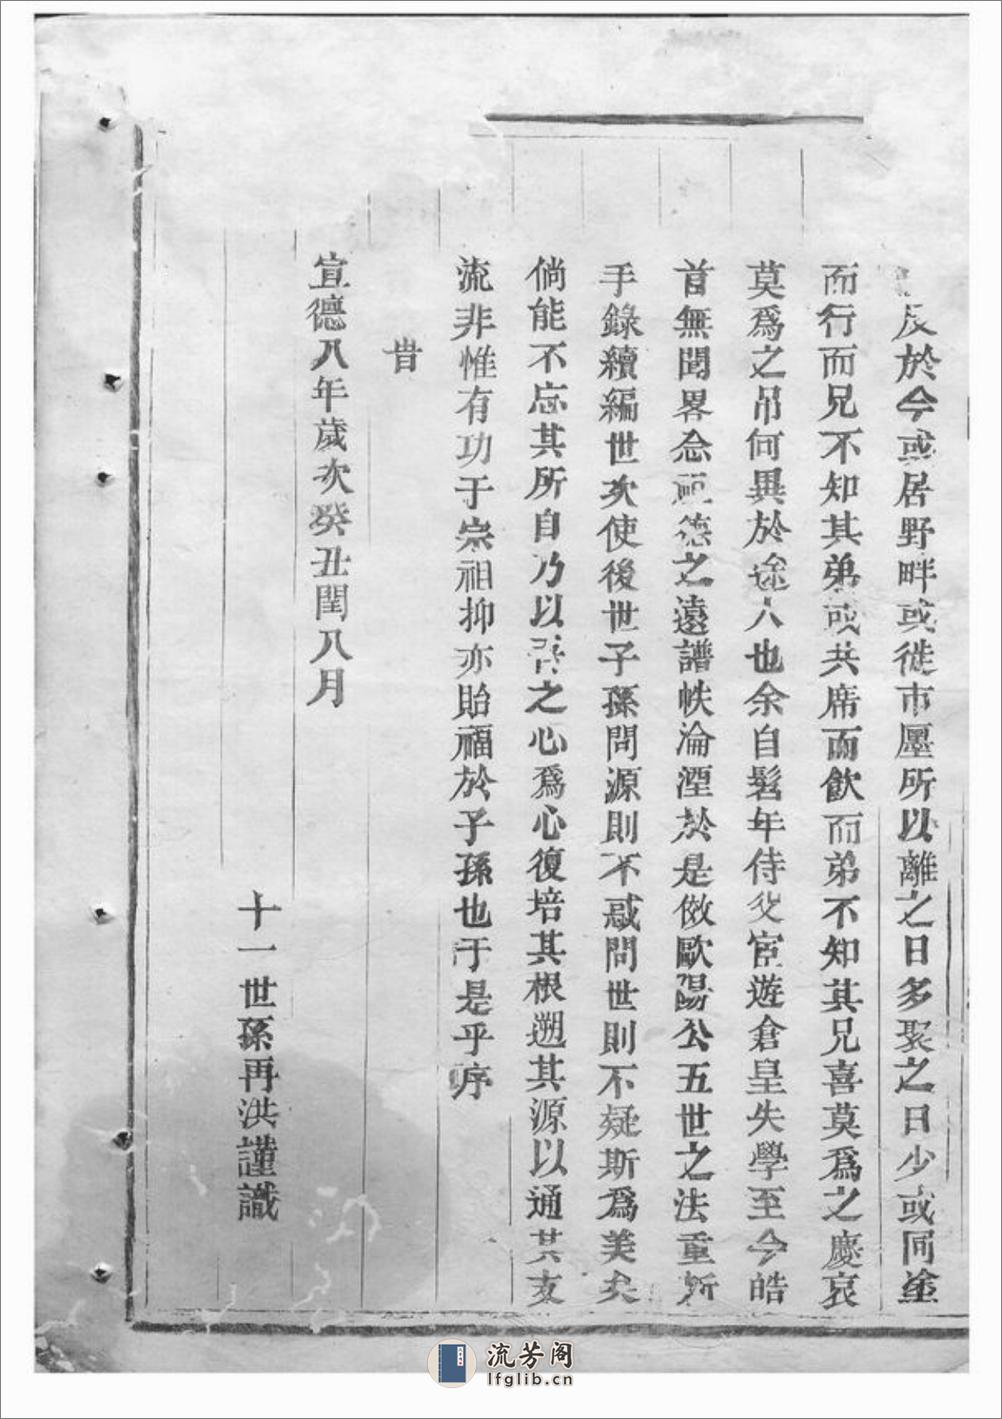 反於今或居野畔或徙市廛所以離之日多聚之日少或同塗
而行而兄不知其弟或共席而飲而弟不知其兄喜莫爲之慶哀
莫爲之吊何異於途人也余自髫年侍父宦遊倉皇失學至今皓
首無聞畧念祖德之遠譜帙淪湮於是倣歐陽公五世之法重新
手錄續編世次使後世子孫問源則不惑問世則不疑斯爲美矣
倘能不忘其所自乃以吾之心爲心復培其根遡其源以通其支
流非惟有功于宗祖抑亦貽福於子孫也于是乎序
旹
宣德八年歲次癸丑閏八月
十一世孫再洪謹識
流芳阁
lfglib.cn